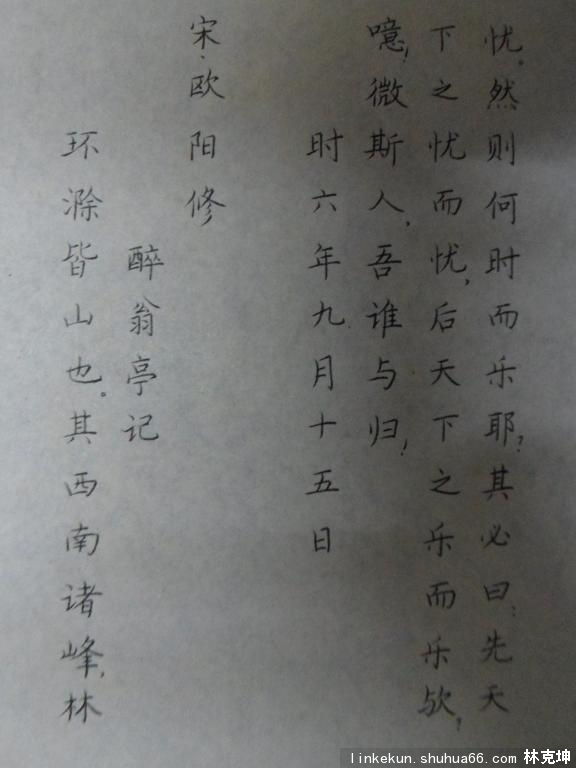 忧。然则何时而乐耶？其必曰：先天
下之忧而忧，后天下之乐而乐欤！
噫！微斯人，吾谁与归！
时六年九月十五日
宋·欧阳修
醉翁亭记
环滁皆山也。其西南诸峰，林
linkekun.shuhua66.com 林克坤